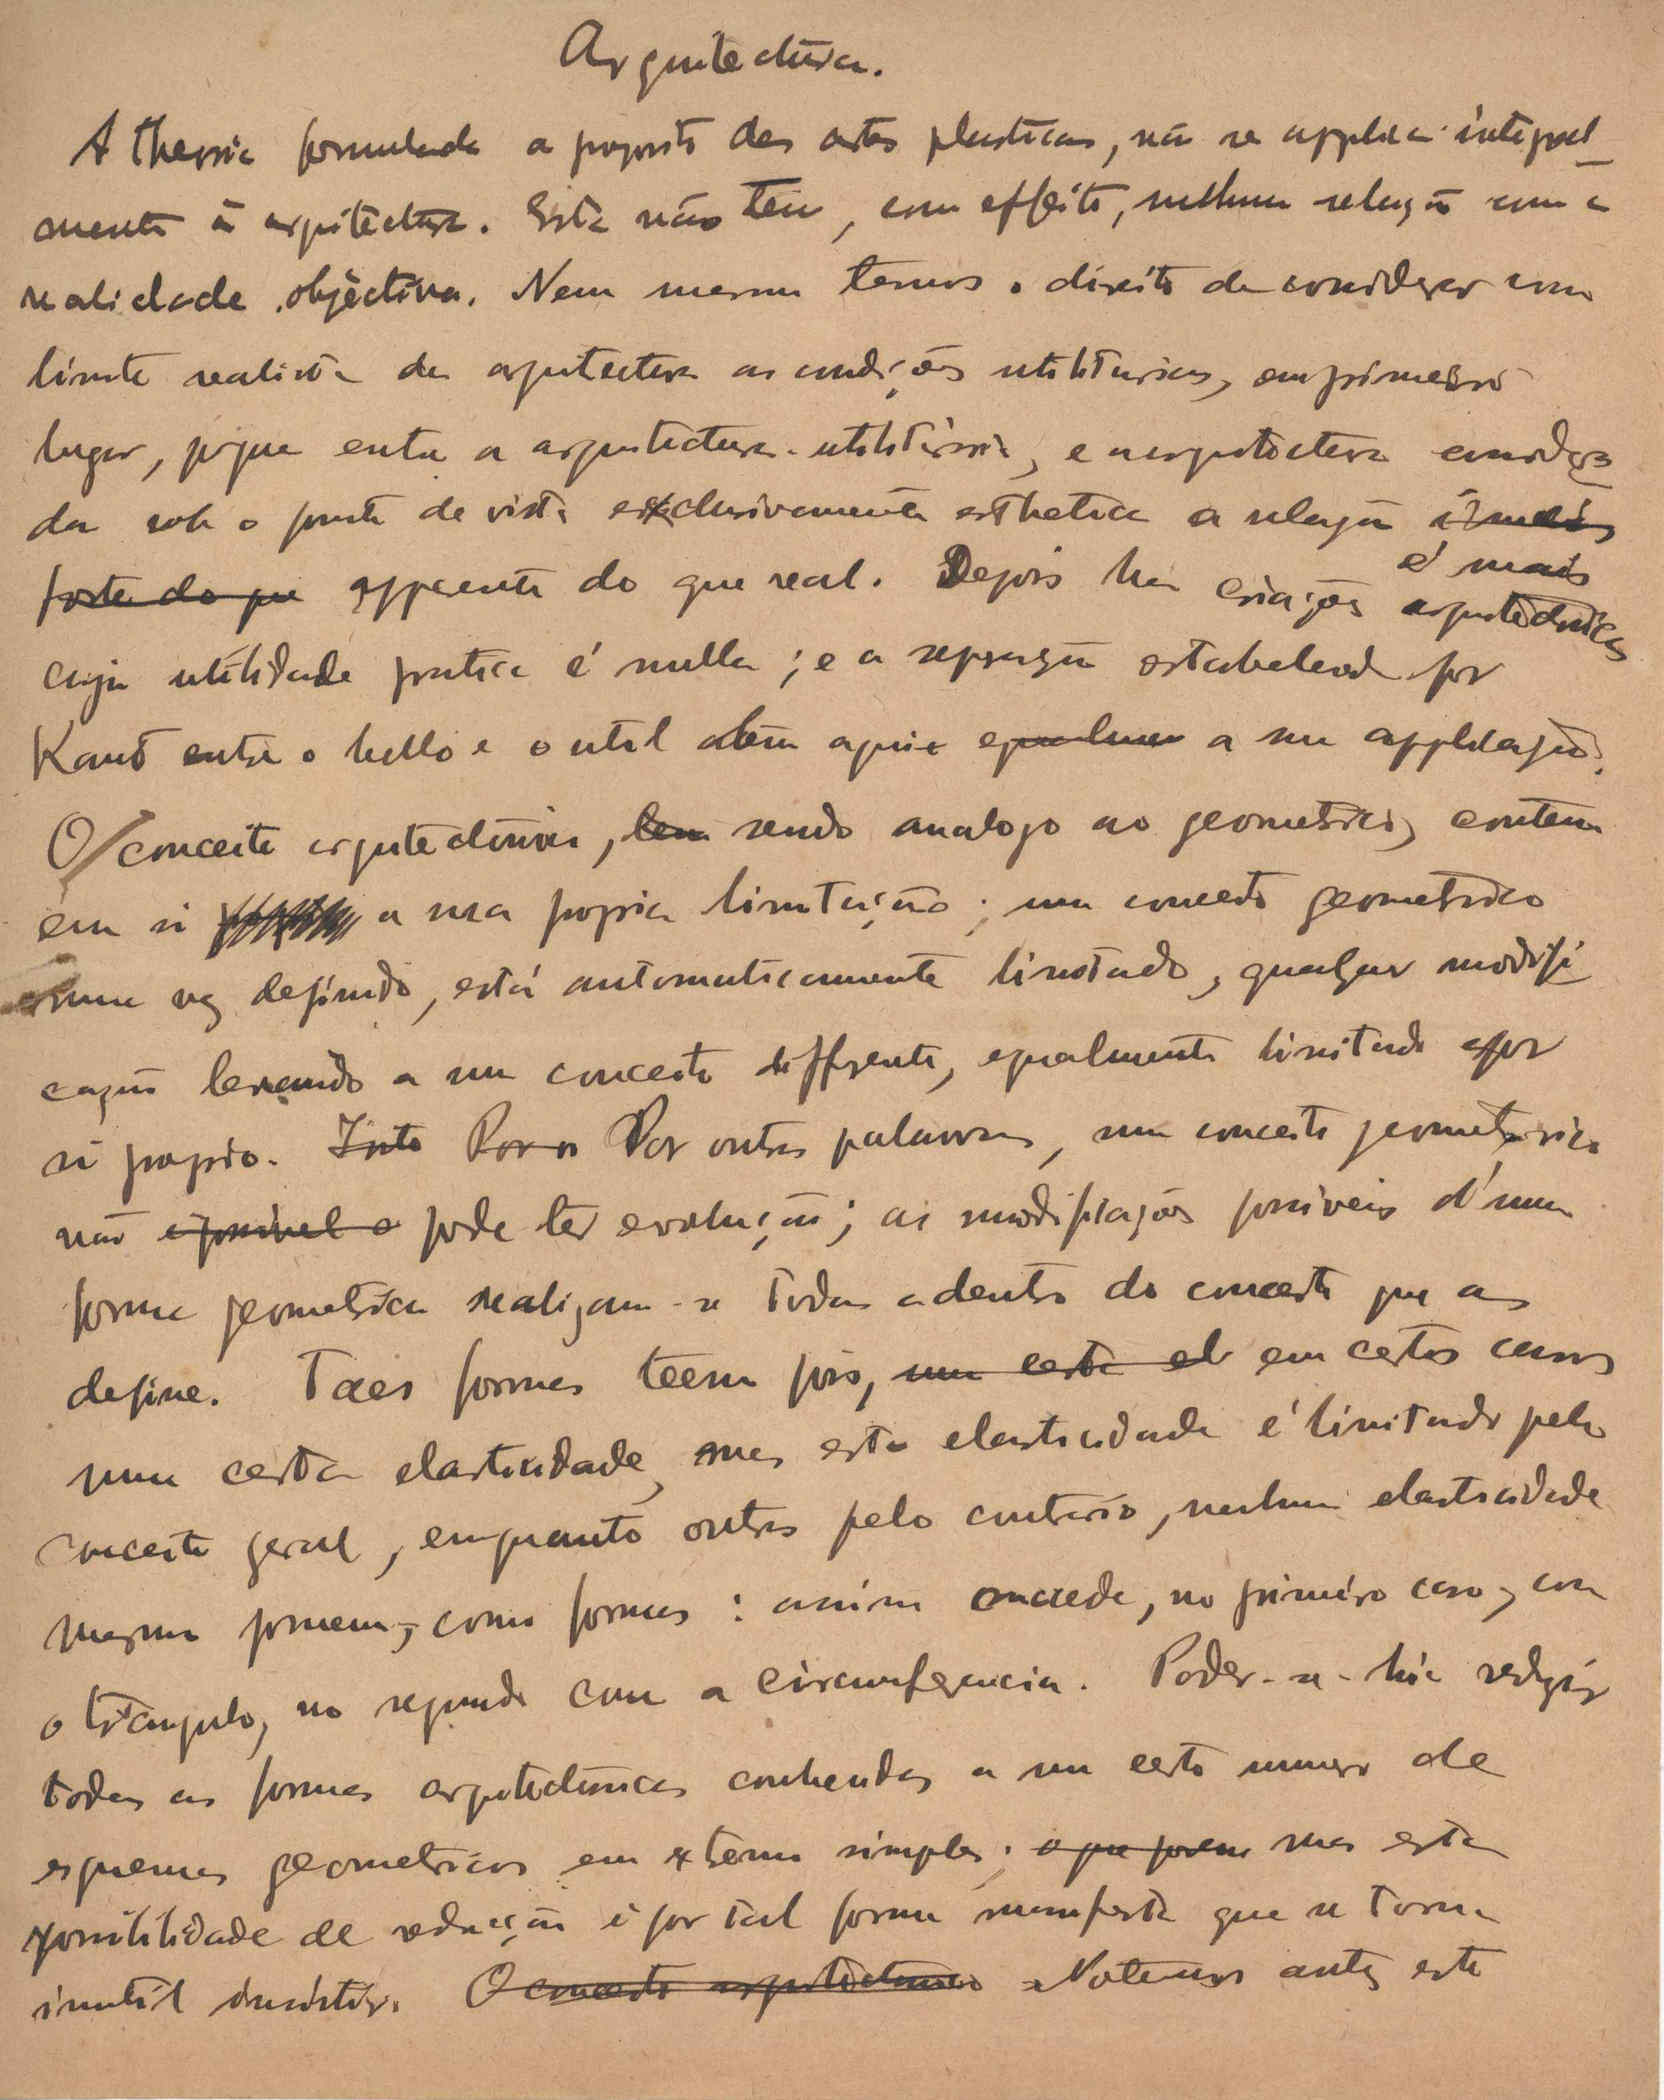 Arquitectura.
A theoria formulada a proposito das artes plasticas, não se applica integral-
mente á arquitectura. Esta não tem, com effeito, nenhuma relação com a
realidade objectiva. Nem mesmo temos o direito de considerar como
limite realista da arquitectura as condições utilitarias, em primeiro
lugar, porque entre a arquitectura utilitária, e a arquitectura considera-
da sob o ponto de vista exclusivamente esthetico a relação é mais
forte do que apparente do que real. Depois ha criações arquitectonicas
é mais
cuja utilidade pratica é nulla; e a separação estabelecida por
Kant entre o bello e o util tem aqui egualmen a sua applicação.
O conceito arquitectonico, tem sendo analogo ao geometrico, contem
em si a sua propria limitação; um conceito geometrico
uma vez definido, está automaticamente limitado, qualquer modifi
cação levando a um conceito differente, egualmente limitado por
si proprio. Isto Por o Por outras palavras, um conceito geometrico
não é possivel o pode ter evolução; as modificações possiveis d'uma
forma geometrica realizam-se todas adentro do conceito que as
define. Taes formas teem pois, uma certa el em certos casos
uma certa elasticidade, mas esta elasticidade é limitada pelo
conceito geral, emquanto outras pelo contrario, nenhuma elasticidade
mesmo possuem, como formas: assim succede, no primeiro caso, com
o triangulo, no segundo com a circumferencia. Poder-se-hia redigir
todas as formas arquitectonicas conhecidas a um certo numero de
esquemas geometricos em extremo simples; o que porem mas esta
possibilidade de redacção é por tal forma manifesta que se torna
inutil insistir. O conceito arquitectonico Notemos antes este